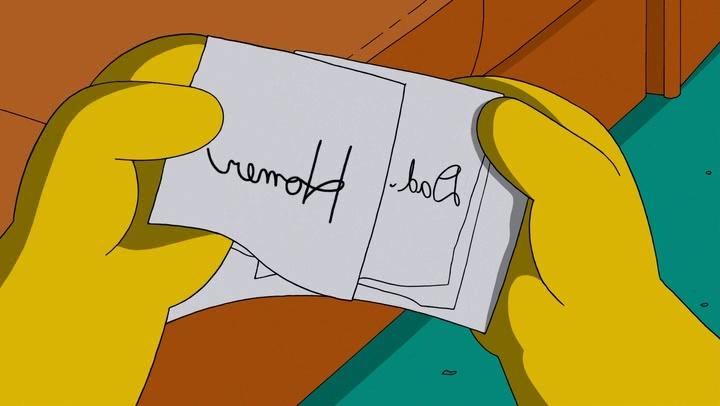 Homer
Dad.